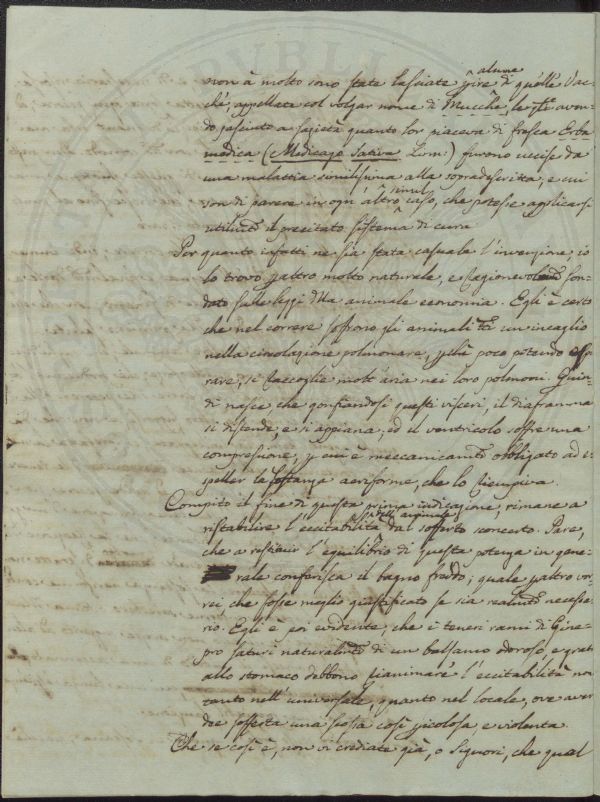 alcune
non à molto sono state lasciate gire di quelle Vac-
chè, appellate col volgar nome di Mucche, le qli aven-
do pasciuto a sazietà quanto lor piaceva di fresca Erba
medica (Medicago Sativa Linn:) furono uccise da
una malattia similissima alla sopradescritta, e cui
son di parere in ogn' altro simil caso, che potesse applicarsi
utilmte il precitato sistema di cura.
Per quanto infatti ne sia stata casuale l'invenzione, io
lo trovo paltro molto naturale, e ragionevolmte fon-
dato sulle leggi della animale economia. Egli è certo
che nel correre soffrono gli animali tti un incaglio
nella circolazione polmonare, pchè poco potendo espi
rare, si raccoglie molt'aria nei loro polmoni. Quin-
di nasce che gonfiandosi questi visceri, il diaframma
si distende, e si appiana, ed il ventricolo soffre una
compressione, p cui è meccanicamte obbligato ad e-
speller la sostanza aeriforme, che lo riempiva.
Compito il fine di questa prima indicazione, rimane a
ristabilire l'eccitabilità dell'animale dal sofferto sconcerto. Pare,
che a restituir l'equilibrio di questa potenza in gene-
rale conferisca il bagno freddo; quale paltro vor-
rei, che fosse meglio giustificato se sia realmte necessa-
rio. Egli è poi evidente, che i teneri rami di Gine-
pro saturi naturalmte di un balsamo odoroso, e grato
allo stomaco debbono rianimare l'eccitabilità non
tanto nell'universale, quanto nel locale, ove aver
dee sofferta una scossa così picolosa, e violenta.
Che se così è, non vi crediate già, o Signori, che qual